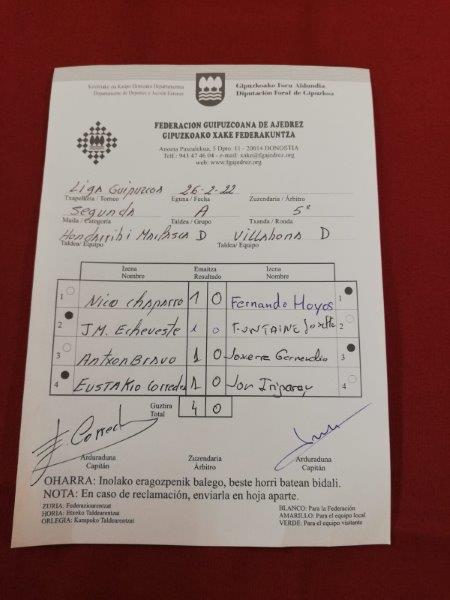 Kirol eta Kanpo Ekintzako Departamentua
Departamento de Deportes y Acción Exterior
Gipuzkoako Foru Aldundia
Diputación Foral de Gipuzkoa
FEDERACION GUIPUZCOANA DE AJEDREZ
GIPUZKOAKO XAKE FEDERAKUNTZA
Anoeta Pasealekua, 5 Dpto. 11 - 20014 DONOSTIA
Telf.: 943 47 46 04 - e-mail: xake@fgajedrez.org
web: www.fgajedrez.org
LIGA GUIPUZCOA 26-2-22
Txapelketa / Torneo Eguna / Fecha Zuzendaria / Árbitro
Segunda A 5ª
Maila / Categoría Taldea / Grupo Txanda / Ronda
Hondarribi D Villabona D
Taldea / Equipo Taldea / Equipo
Izena Emaitza Izena
Nombre Resultado Nombre
1 Nico Chaparro 1 0 Fernando Hoyos 1
2 J.M. Echeveste 1 0 FONTAINE 2
3 Antxon Bravo 1 0 Joxerra 3
4 EUSTAKIO Corredera 1 0 Jon 4
Guztira
Total 4 0
Arduraduna Zuzendaria Arduraduna
Capitán Árbitro Capitán
OHARRA: Inolako eragozpenik balego, beste horri batean bidali.
NOTA: En caso de reclamación, enviarla en hoja aparte.
ZURIA: Federazioarentzat BLANCO: Para la Federación
HORIA: Etxeko Taldearentzat AMARILLO: Para el equipo local
ORLEGIA: Kanpoko Taldearentzat VERDE: Para el equipo visitante